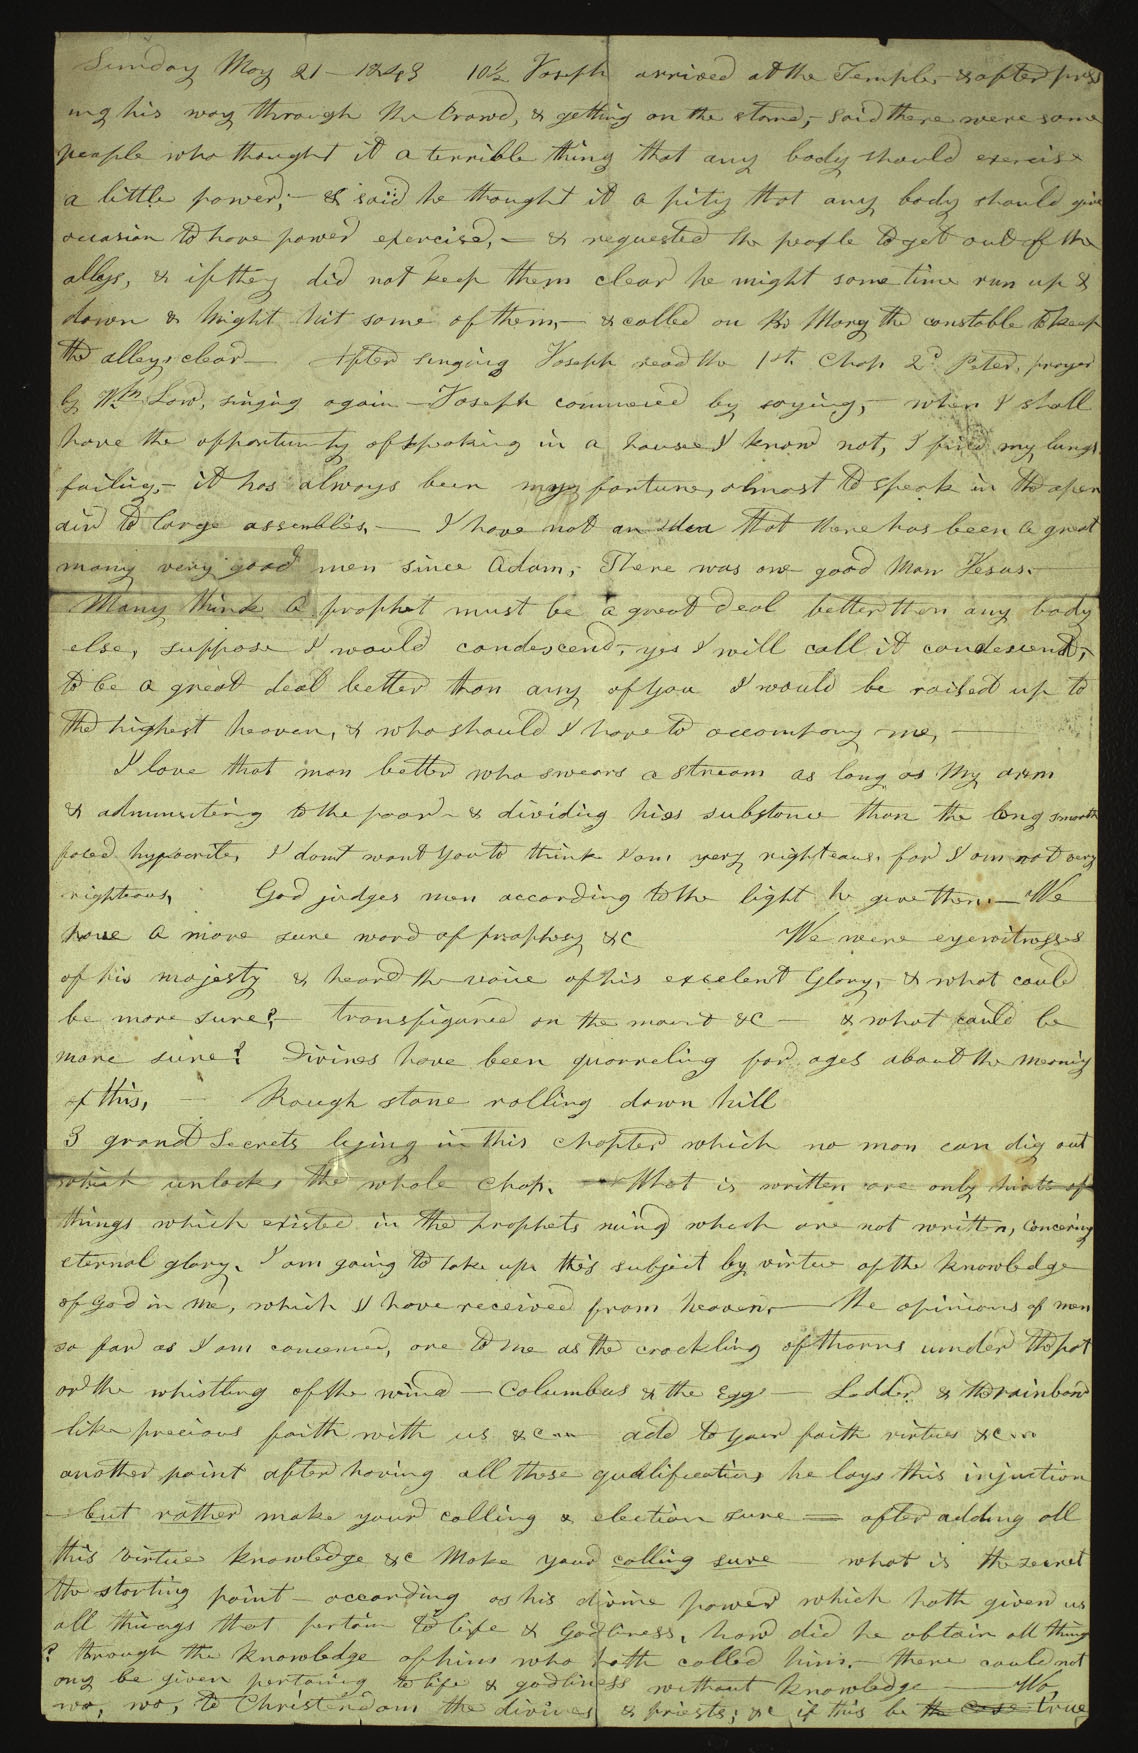 Sunday May 21 - 1843 10½ Joseph arrived at the Temple, & after press
ing his way through the Crowd, & getting on the stand, said there were some
people who thought it a terrible thing that any body should exercise
a little power;- & said he thought it a pity that any body should give
occasion to have power exercised,- & requested the people to get out of the
alleys, & if they did not keep them clear he might some time run up &
down & might hit some of them,- & called on Bro Morey the constable to keep
the alleys clear- After singing Joseph read the 1st Chap 2d Peter, prayer
by Wm Law, singing again- Joseph commenced by saying,- when I shall
have the opportunity of speaking in a house I know not, I find my lungs
failing,- it has always been my fortune, almost to speak in the open
air to large assemblies,- I have not an idea that there has been a great
many very good men since Adam,- There was one good Man Jesus.-
Many think a prophet must be a great deal better than any body
else, suppose I would condescend,- yes I will call it condescend,-
to be a great deal better than any of you I would be raised up to
the highest heaven, & who should I have to accompany me,-
I love that man better who swears a stream as long as my arm
& administering to the poor- & dividing his substance than the long smooth
faced hypocrite, I dont want you to think I am very righteous, for I am not very
righteous, God judges men according to the light he gives them.- We
have a more sure word of prophesy &c We were eyewitnesses
of his majesty & heard the voice of his excelent Glory,- & what could
be more sure?- transfigured on the mount &c- & what could be
more sure? Divines have been quarreling for ages about the meaning
of this,- Rough stone rolling down hill
3 grand Secrets lying in this chapter which no man can dig out
which unlocks the whole chap. What is written are only hints of
things which existed in the prophets mind which are not written, concering
eternal glory, I am going to take up this subject by virtue of the knowledge
of God in me, which I have received from heaven,- The opinions of men
so far as I am concerned, are to me as the crackling of thorns under the pot
or the whistling of the wind - Columbus & the Egg - Ladder & the rainbow
like precious faith with us &c - add to your faith virtue &c
another point after having all these qualifications he lays this injunction
- but rather make your calling & election sure - after adding all
this virtue knowledge &c make your calling sure - what is the secret
the starting point - according as his divine power which hath given us
all things that pertain to life & Godliness, how did he obtain all things
? through the knowledge of him who hath called him.- there could not
any be given pertaining to life & godliness without knowledge - Wo
wo, wo, to Christendom the divines & priests; &c if this be the case true